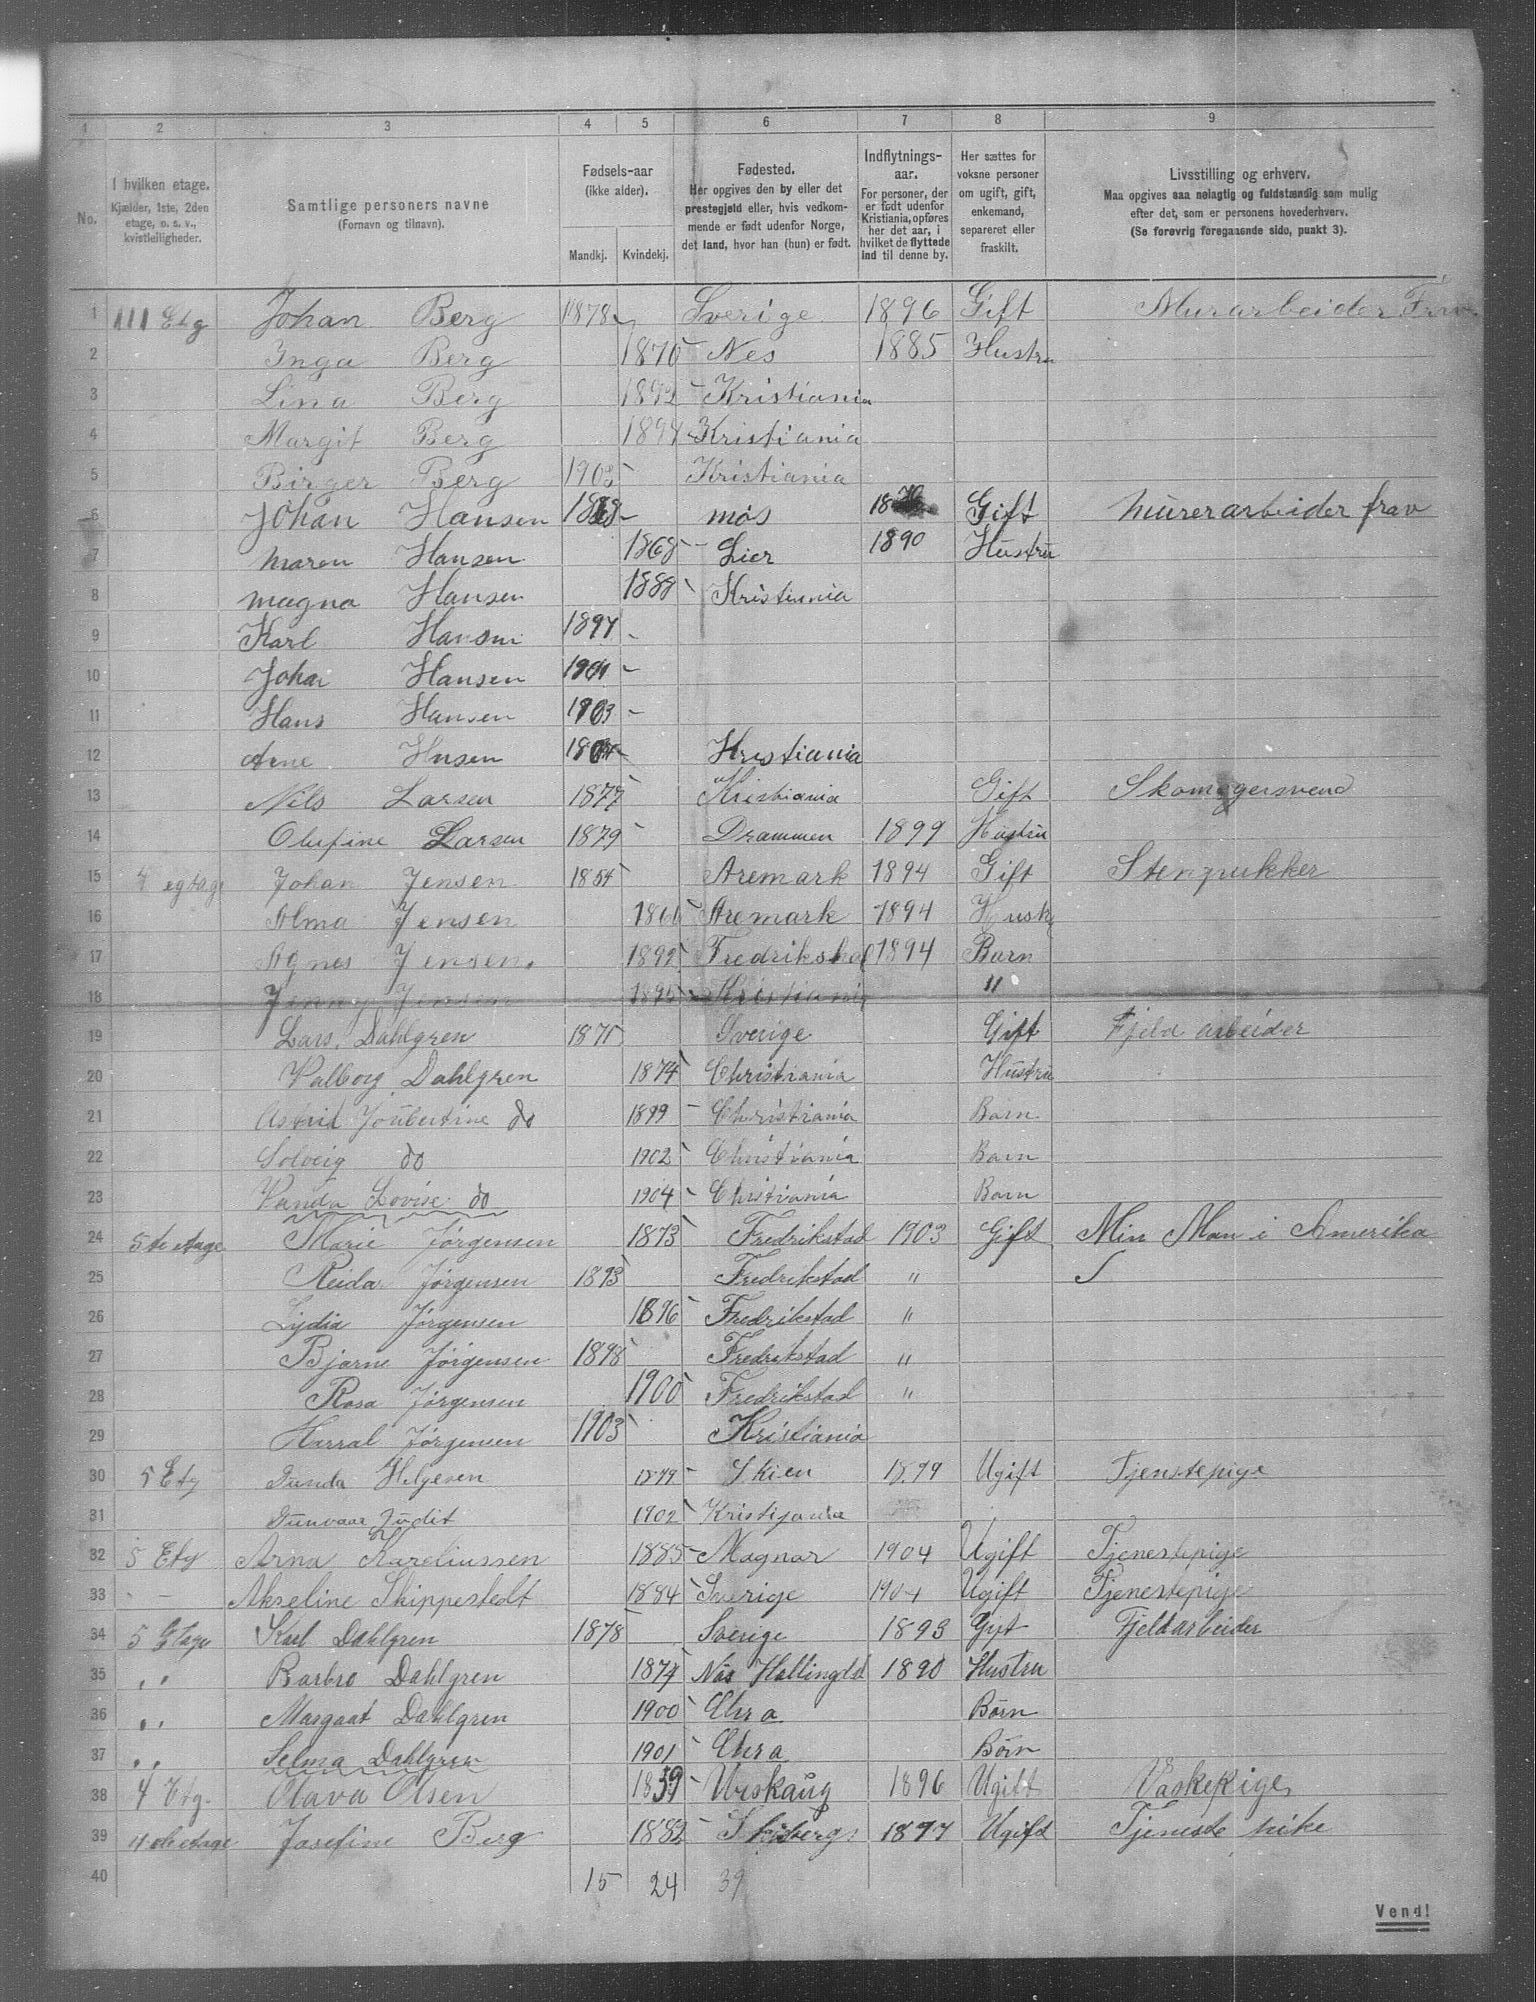 1 2 3 4 5 6 7 8 9
No. I hvilken etage. Kjælder, 1ste, 2den etage, o. s. v., kvistleiligheder. Samtlige personers navne (Fornavn og tilnavn). Fødsels-aar (ikke alder). Mandkj. Kvindekj. Fødested. Her opgives den by eller det prestegjeld eller, hvis vedkommende er født udenfor Norge, det land, hvor han (hun) er født. Indflytnings-aar. For personer, der er født udenfor Kristiania, opføres her det aar, i hvilket de flyttede ind til denne by. Her sættes for voksne personer om ugift, gift, enkemand, separeret eller fraskilt. Livsstilling og erhverv. Maa opgives saa nøiagtig og fuldstændig som mulig efter det, som er personens hovederhverv. (Se forøvrig foregaaende side, punkt 3).
1 III Etg Johan Berg 1878 Sverige 1896 Gift Murarbeider Frav
2 Inga Berg 1870 Nes 1885 Hustru
3 Lina Berg 1892 Kristiania
4 Margit Berg 1894 Kristiania
5 Birger Berg Kristiania
6 Johan Hansen mos Gift murerarbeider frav
7 maren Hansen 1868 Lier 1890 Hustru
8 magna Hansen 1888 Kristiania
9 Karl Hansen 1897
10 Johan Hansen 1901
11 Hans Hansen 1903
12 Arne Hnsen Kristiania
13 Nils Larsen 1877 Kristiania Gift Skomagersvend
14 Olufine Larsen 1879 Drammen 1899 Hustru
15 4 egtage Johan Jensen 1854 Aremark 1894 Gift Stenpukker
16 Alma Jensen Aremark 1894 Hustr
17 Agnes Jensen. 1892 Fredrikshal 1894 Barn
18 Jenny Jensen 1895 Kristiania "
19 Lars Dahlgren 1871 Sverige Gift Fjeld arbeider
20 Valborg Dahlgren 1874 Christiania Hustru
21 Astrid Joubertine do 1899 Christiania Barn
22 Solveig do 1902 Christiania Barn
23 Vanda Lovise do 1904 Christiania Barn
24 5te etage Marie Jørgensen 1873 Fredrikstad 1903 Gift Min Man i Amerika
25 Reidar Jørgensen 1893 Fredrikstad "
26 Lydia Jørgensen 1896 Fredrikstad "
27 Bjarne Jørgensen 1898 Fredrikstad "
28 Rosa Jørgensen 1900 Fredrikstad "
29 Harral Jørgensen 1903 Kristiania
30 5 Etg Gunda Helgesen 1879 Skien 1899 Ugift Tjenstepige
31 Gunvaar Judit 1902 Kristijania
32 5 Etg Arna Kareliussen 1885 Magnor 1904 Ugift Tjenestepige
33 - - Akseline Skippestedt 1884 Sverige 1904 Ugift Tjenestepige
34 5 Etage Karl Dahlgren 1878 Sverige 1893 Gift Fjeldarbeider
35 " Barbro Dahlgren 1874 Nås Hallingdl 1890 Hustru
36 " Margaat Dahlgren 1900 Chra Børn
37 " Selma Dahlgren 1901 Chra Børn
38 4 Etg. Olava Olsen 1859 Urskaug 1896 Ugift Vaskepige
39 4de etage Josefine Berg 1882 1897 Ugift Tjeneste pike
40 15 24 39
Vend!